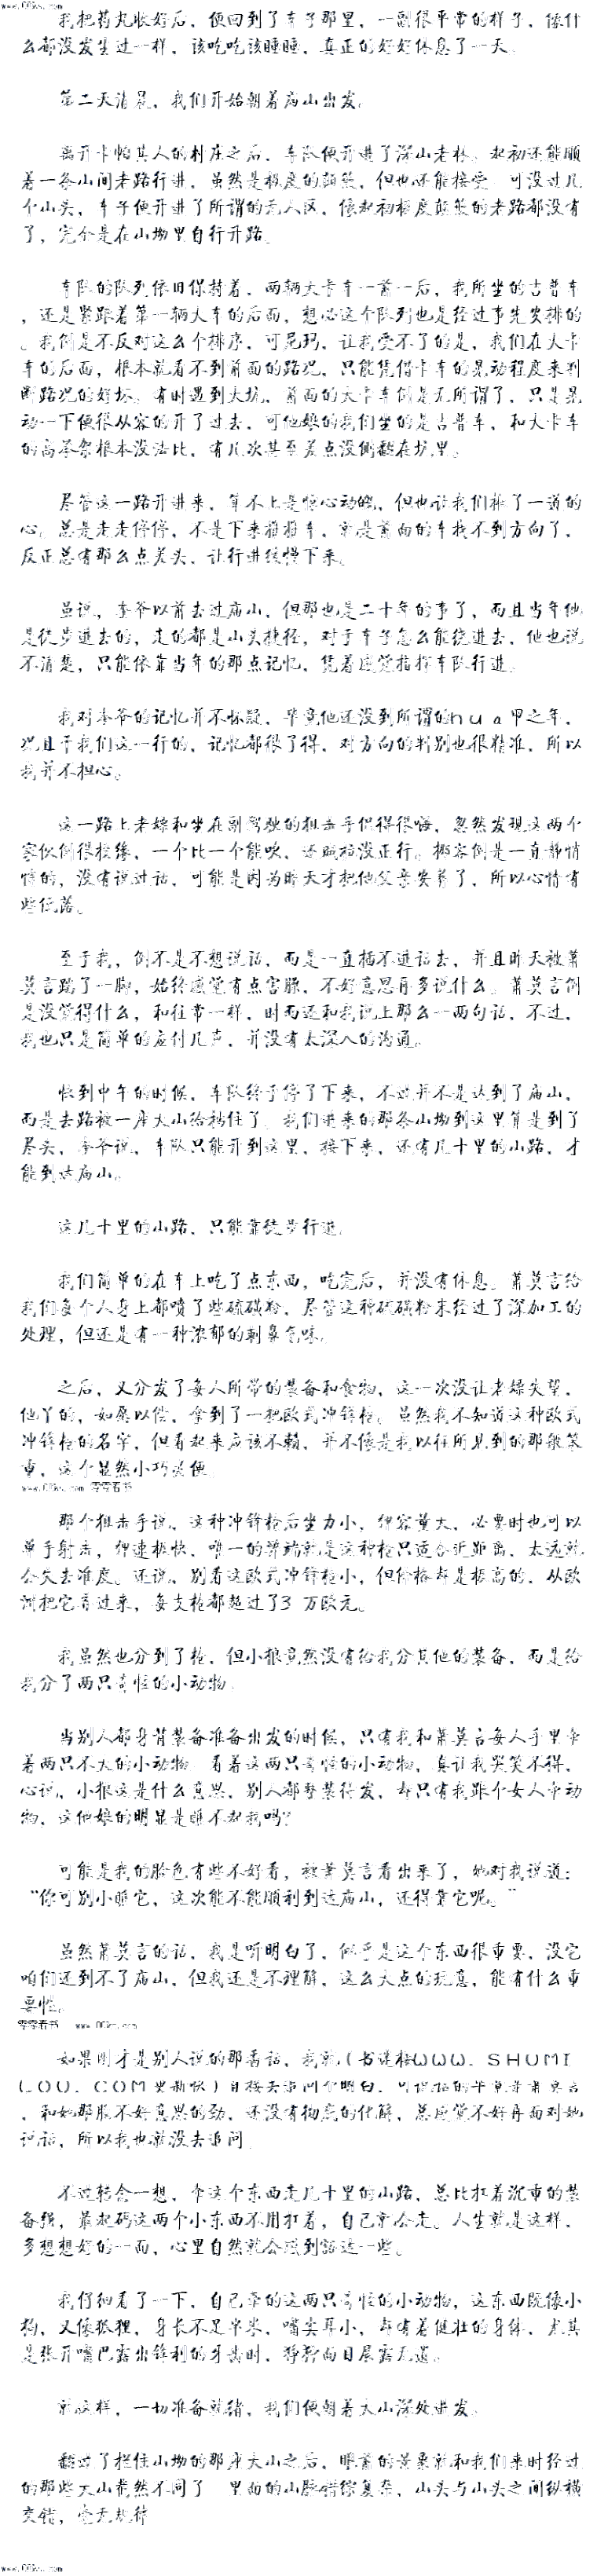 www.00ks.com
我把药丸收好后，便回到了车子那里，一副很平常的样子，像什
么都没发生过一样，该吃吃该睡睡，真正的好好休息了一天。
第二天清晨，我们开始朝着庙山出发。
离开卡帕其人的村庄之后，车队便开进了深山老林。起初还能顺
着一条山间老路行进，虽然是极度的颠簸，但也还能接受。可没过几
个山头，车子便开进了所谓的无人区，像起初极度颠簸的老路都没有
了，完全是在山坳里自行开路。
车队的队列依旧保持着，两辆大卡车一前一后，我所坐的吉普车
，还是紧跟着第一辆大车的后面，想必这个队列也是经过事先安排的
。我倒是不反对这么个排序，可尼玛，让我受不了的是，我们在大卡
车的后面，根本就看不到前面的路况，只能凭借卡车的晃动程度来判
断路况的好坏。有时遇到大坑，前面的大卡车倒是无所谓了，只是晃
动一下便很从容的开了过去，可他娘的我们坐的是吉普车，和大卡车
的高苯架根本没法比，有几次甚至差点没侧翻在坑里。
尽管这一路开进来，算不上是惊心动魄，但也让我们揪了一道的
心。总是走走停停，不是下来推推车，就是前面的车找不到方向了，
反正总有那么点差头，让行进缓慢下来。
虽说，李爷以前去过庙山，但那也是二十年的事了，而且当年他
是徒步进去的，走的都是山头捷径，对于车子怎么能绕进去，他也说
不清楚，只能依靠当年的那点记忆，凭着感觉指挥车队行进。
我对李爷的记忆并不怀疑，毕竟他还没到所谓的hua甲之年，
况且干我们这一行的，记忆都很了得，对方向的判别也很精准，所以
我并不担心。
这一路上老嫖和坐在副驾驶的狙击手侃得很嗨，忽然发现这两个
家伙倒得投缘，一个比一个能吹，还贼拉没正行。掷客倒是一直静悄
悄的，没有说过话，可能是因为昨天才把他父亲安葬了，所以心情有
些低落。
至于我，倒不是不想说话，而是一直插不进话去，并且昨天被萧
莫言踹了一脚，始终感觉有点害臊，不好意思再多说什么。萧莫言倒
是没觉得什么，和往常一样，时而还和我说上那么一两句话，不过，
我也只是简单的应付几声，并没有太深入的沟通。
快到中午的时候，车队终于停了下来，不过并不是达到了庙山，
而是去路被一座大山给挡住了。我们进来的那条山坳到这里算是到了
尽头，李爷说，车队只能开到这里，接下来，还有几十里的山路，才
能到达庙山。
这几十里的山路，只能靠徒步行进。
我们简单的在车上吃了点东西，吃完后，并没有休息。萧莫言给
我们每个人身上都喷了些硫磺粉，尽管这种硫磺粉末经过了深加工的
处理，但还是有一种浓郁的刺鼻气味。
之后，又分发了每人所带的装备和食物，这一次没让老嫖失望，
他丫的，如愿以偿，拿到了一把欧式冲锋枪。虽然我不知道这种欧式
冲锋枪的名字，但看起来应该不赖，并不像是我以往所见到的那般笨
重，这个显然小巧灵便。
www.00ks.com 零零看书
那个狙击手说，这种冲锋枪后坐力小，弹容量大，必要时也可以
单手射击，弹速极快，唯一的弊端就是这种枪只适合近距离，太远就
会失去准度。还说，别看这欧式冲锋枪小，但价格却是极高的，从欧
洲把它弄过来，每支枪都超过了3万欧元。
我虽然也分到了枪，但小狼竟然没有给我分其他的装备，而是给
我分了两只奇怪的小动物。
当别人都身背装备准备出发的时候，只有我和萧莫言每人手里牵
着两只不大的小动物。看着这两只奇怪的小动物，真让我哭笑不得，
心说，小狼这是什么意思，别人都整装待发，却只有我跟个女人牵动
物，这他娘的明显是瞧不起我吗？
可能是我的脸色有些不好看，被萧莫言看出来了，她对我说道：
“你可别小瞧它，这次能不能顺利到达庙山，还得靠它呢。”
虽然萧莫言的话，我是听明白了，似乎是这个东西很重要，没它
咱们还到不了庙山，但我还是不理解，这么大点的玩意，能有什么重
要性。
零零看书 www.00ks.com
如果刚才是别人说的那番话，我就（书迷楼WWW．SHUMI
LOU．COM更新快）直接去追问个明白，可说话的毕竟是萧莫言
，和她那股不好意思的劲，还没有彻底的化解，总感觉不好再面对她
说话，所以我也就没去追问。
不过转念一想，牵这个东西走几十里的山路，总比扛着沉重的装
备强，最起码这两个小东西不用扛着，自己就会走。人生就是这样，
多想想好的一面，心里自然就会感到豁达一些。
我仔细看了一下，自己牵的这两只奇怪的小动物，这东西既像小
狗，又像狐狸，身长不足半米，嘴尖耳小，却有着健壮的身体，尤其
是张开嘴巴露出锋利的牙齿时，狰狞面目展露无遗。
就这样，一切准备就绪，我们便朝着大山深处进发。
翻过了拦住山坳的那座大山之后，眼前的景象就和我们来时经过
的那些大山截然不同了，里面的山脉错综复杂，山头与山头之间纵横
交错，毫无规律
www.00ks.com